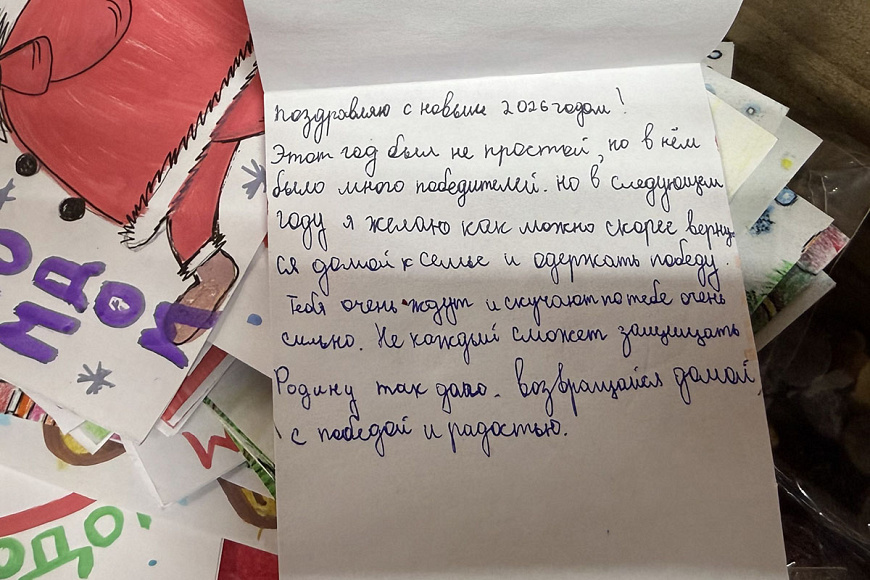 поздравляю с новым 2026 годом!
Этот год был не простой, но в нём
было много победителей. но в следующем
году я желаю как можно скорее верну-
ся домой к семье и одержать победу.
Тебя очень ждут и скучают по тебе очень
сильно. Не каждый сможет защищать
Родину так долго. возвращайся домой
с победой и радостью.